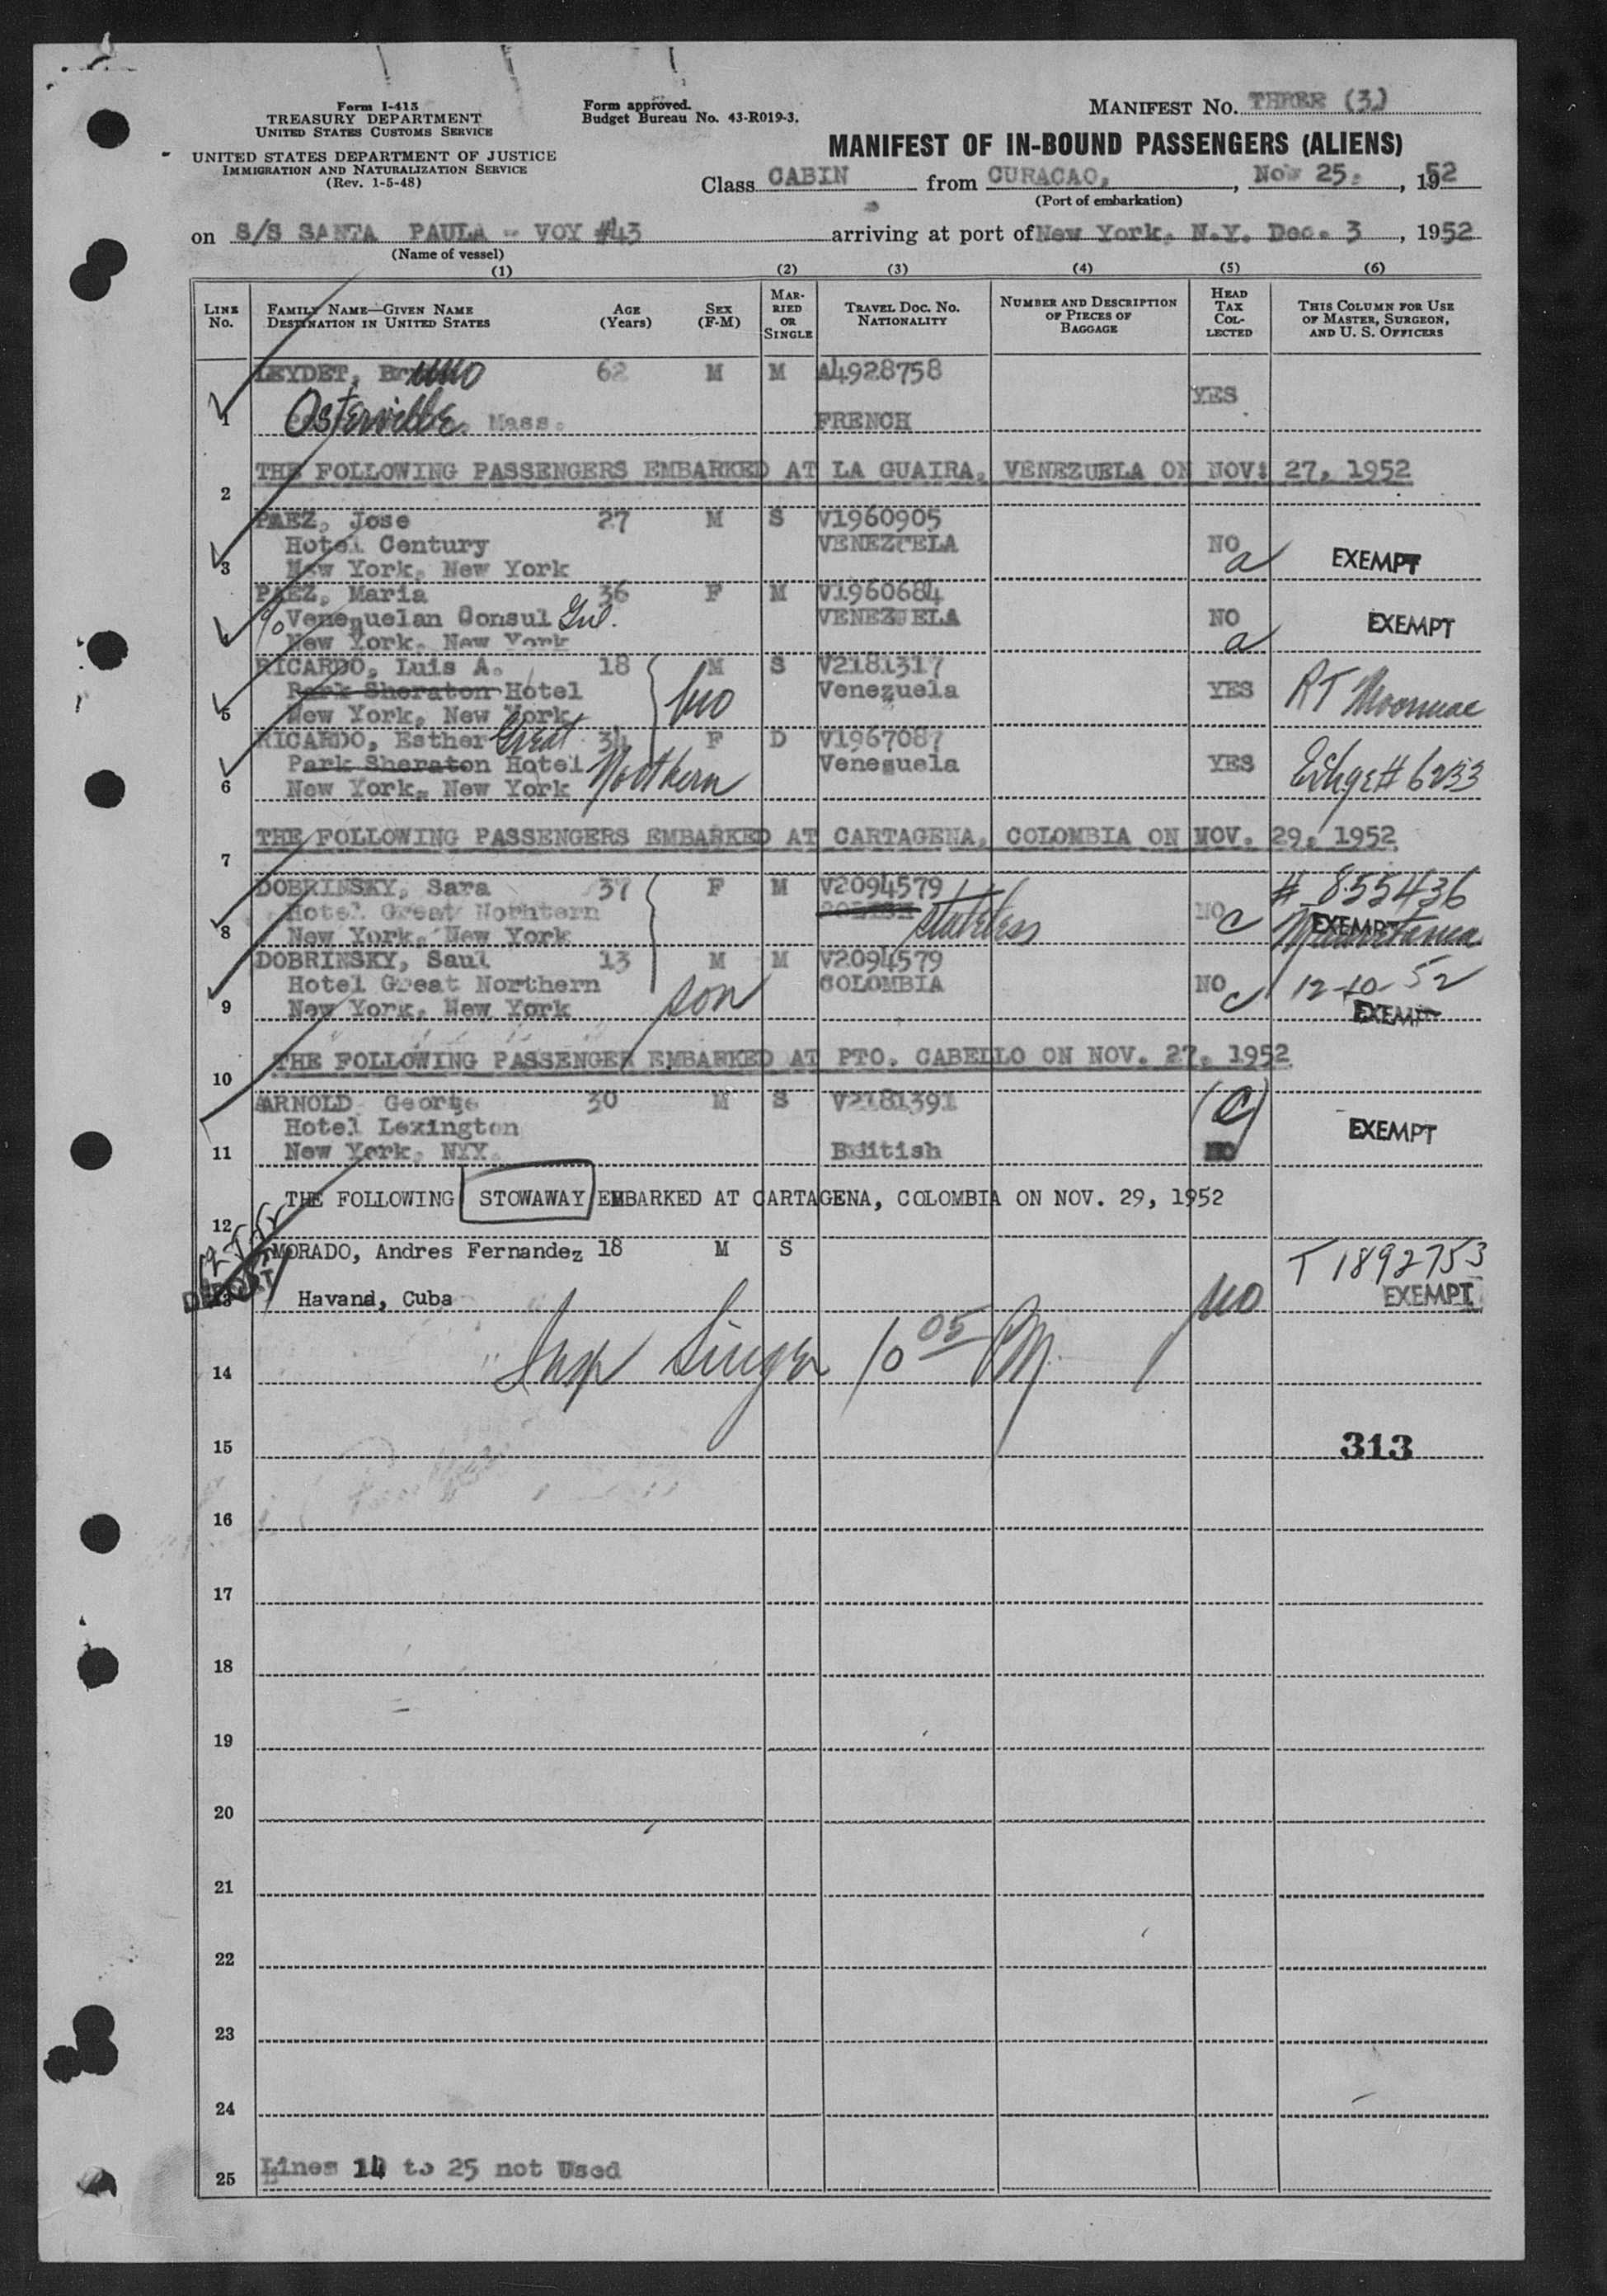 Form I-415
TREASURY DEPARTMENT
UNITED STATES CUSTOMS SERVICE
UNITED STATES DEPARTMENT OF JUSTICE
IMMIGRATION AND NATURALIZATION SERVICE
(Rev. 1-5-48)
Form approved.
Budget Bureau No. 43-R019-3.
MANIFEST No. THREE (3)
MANIFEST OF IN-BOUND PASSENGERS (ALIENS)
Class CABIN from CURACAO, , Nov 25. , 1952
(Port of embarkation)
on S/S SANTA PAULA - VOY #43 arriving at port of New York, N.Y. Dec. 3 , 1952
(Name of vessel)
(1) (2) (3) (4) (5) (6)
LINE No. FAMILY NAME—GIVEN NAME DESTINATION IN UNITED STATES AGE (Years) SEX (F-M) MARRIED OR SINGLE TRAVEL DOC. NO. NATIONALITY NUMBER AND DESCRIPTION OF PIECES OF BAGGAGE HEAD TAX COLLECTED THIS COLUMN FOR USE OF MASTER, SURGEON, AND U. S. OFFICERS
LEYDET, Bruno 62 M M A4928758
YES
1 Osterville, Mass. FRENCH
THE FOLLOWING PASSENGERS EMBARKED AT LA GUAIRA, VENEZUELA ON NOV: 27, 1952
2
PAEZ, Jose 27 M S V1960905
Hotel Century VENEZUELA NO
3 New York, New York a EXEMPT
PAEZ, Maria 36 F M V1960684
c/o Venezuelan Consul Gnl. VENEZUELA NO EXEMPT
4 New York, New York a
RICARDO, Luis A. 18 M S V2181317
Park Sheraton Hotel Venezuela YES RT Moormac
5 New York, New York
RICARDO, Esther Great 34 F D V1967087
Park Sheraton Hotel Northern Venesuela YES #6233
6 New York, New York
THE FOLLOWING PASSENGERS EMBARKED AT CARTAGENA, COLOMBIA ON NOV. 29, 1952
7
DOBRINSKY, Sara 37 F M V2094579 # 855436
Hotel Great Norhtern POLISH stateless NO c EXEMPT Mauretania
8 New York, New York
DOBRINSKY, Saul 13 M M V2094579
Hotel Great Northern COLOMBIA NO c 12-10-52
9 New York, New York son EXEMPT
THE FOLLOWING PASSENGER EMBARKED AT PTO. CABELLO ON NOV. 27, 1952
10
ARNOLD George 30 M S V2181391 (C)
Hotel Lexington EXEMPT
11 New York, NYX. British NO
THE FOLLOWING STOWAWAY EMBARKED AT CARTAGENA, COLOMBIA ON NOV. 29, 1952
12
MORADO, Andres Fernandez 18 M S T 1892753
13 Havana, Cuba no EXEMPT
Insp Singer 10 05 PM
14
15 313
16
17
18
19
20
21
22
23
24
25 Lines 14 to 25 not Used